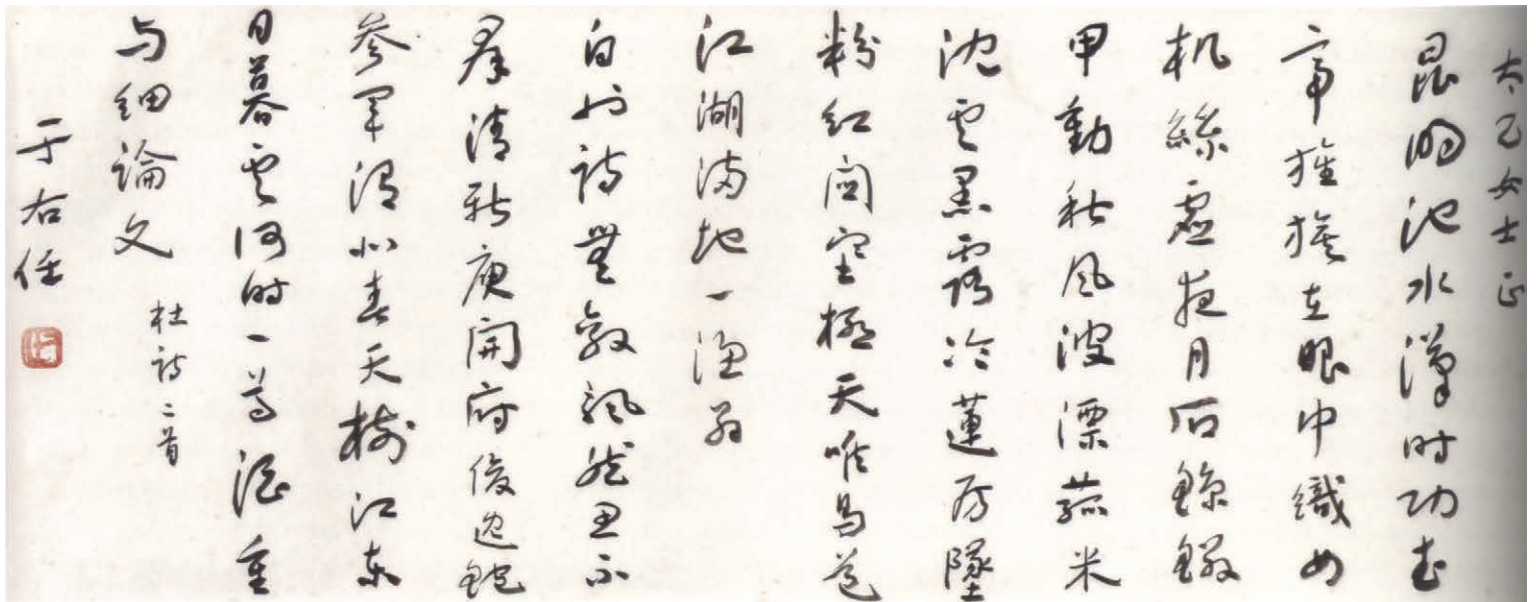 太乙女士正
昆明池水漢时功武
帝旌旗在眼中織女
机絲虛夜月石鯨鱗
甲動秋風波漂菰米
沈雲黑露冷蓮房墜
粉紅関塞極天唯鳥道
江湖满地一漁翁
白也詩無敵飄然思不
群清新庾開府俊逸鮑
參軍渭北春天樹江東
日暮雲何时一尊酒重
与細論文
杜詩二首
于右任